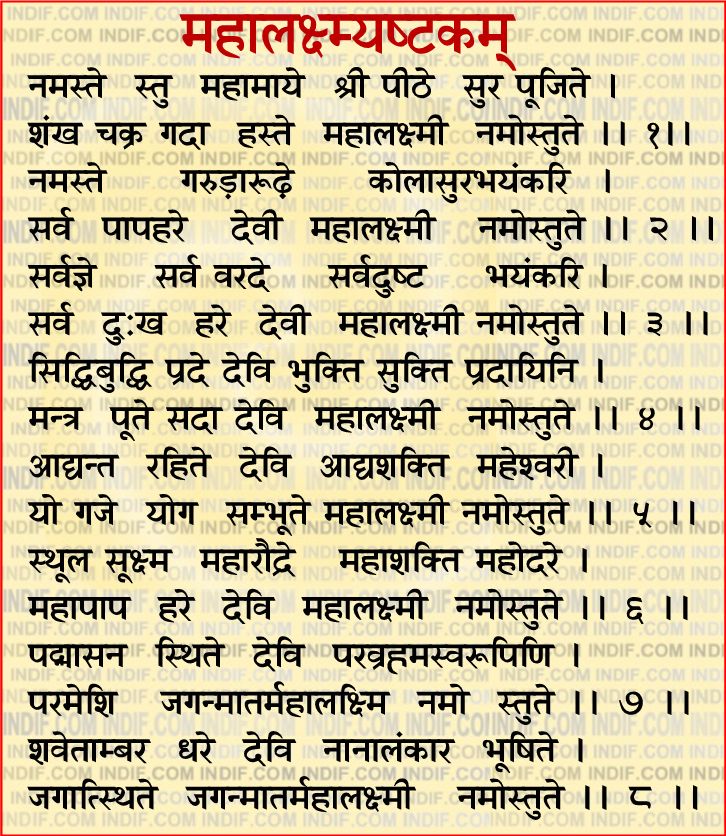 महालक्ष्म्यष्टकम्
नमस्ते स्तु महामाये श्री पीठे सुर पूजिते ।
शंख चक्र गदा हस्ते महालक्ष्मी नमोस्तुते ।। १।।
नमस्ते गरुड़ारूढ़े कोलासुरभयंकरि ।
सर्व पापहरे देवी महालक्ष्मी नमोस्तुते ।। २ ।।
सर्वज्ञे सर्व वरदे सर्वदुष्ट भयंकरि ।
सर्व दुःख हरे देवी महालक्ष्मी नमोस्तुते ।। ३ ।।
सिद्धिबुद्धि प्रदे देवि भुक्ति सुक्ति प्रदायिनि ।
मन्त्र पूते सदा देवि महालक्ष्मी नमोस्तुते ।। ४ ।।
आद्यन्त रहिते देवि आद्यशक्ति महेश्वरी ।
यो गजे योग सम्भूते महालक्ष्मी नमोस्तुते ।। ५ ।।
स्थूल सूक्ष्म महारौद्रे महाशक्ति महोदरे ।
महापाप हरे देवि महालक्ष्मी नमोस्तुते ।। ६ ।।
पद्मासन स्थिते देवि परव्रहमस्वरूपिणि ।
परमेशि जगन्मातर्महालक्ष्मि नमो स्तुते ।। ७ ।।
शवेताम्बर धरे देवि नानालंकार भूषिते ।
जगात्स्थिते जगन्मातर्महालक्ष्मी नमोस्तुते ।। ८ ।।